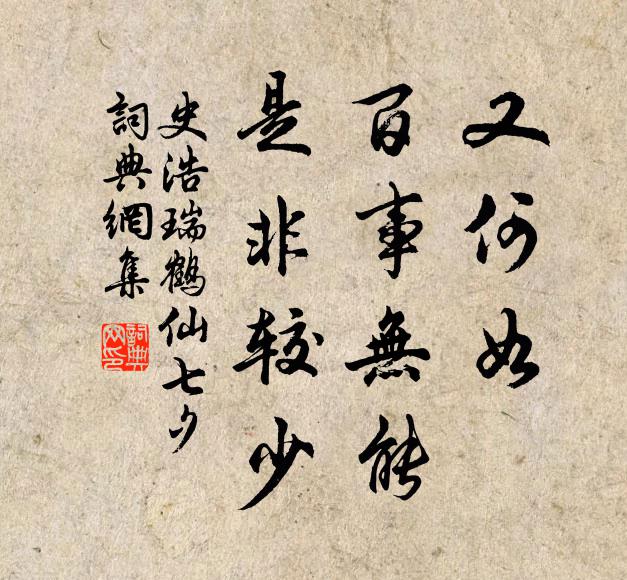 又何如
百事無能
是非較少
史浩瑞鶴仙七夕
詞典網集
詞典網印